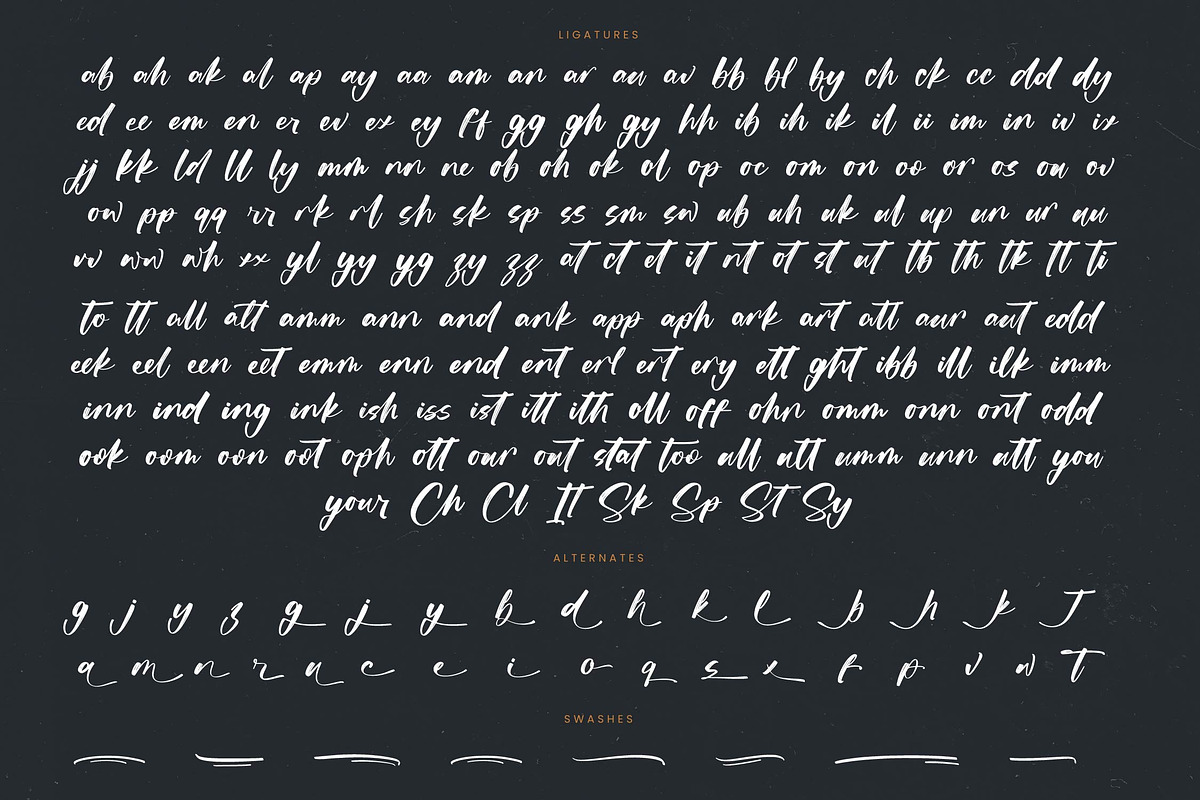 LIGATURES
ab ah ak al ap ay aa am an ar au av bb bl by ch ck cc dd dy
ed ee em en er ev ex ey ff gg gh gy hh ib ih ik il ii im in iv ix
jj kk ld ll ly mm nn ne ob oh ok ol op oc om on oo or os ou ov
ow pp qq rr rk rl sh sk sp ss sm sw ub uh uk ul up un ur uu
vv ww wh xx yl yy yg zy zz at ct et it nt ot st ut tb th tk tl ti
to tt all att amm ann and ank app aph ark art att aur aut edd
eek eel een eet emm enn end ent erl ert ery ett ght ibb ill ilk imm
inn ind ing ink ish iss ist itt ith oll off ohn omm onn ont odd
ook oom oon oot oph ott our out stat too ull utt umm unn utt you
your Ch Cl It Sk Sp St Sy
ALTERNATES
g j y z g j y b d h k l b h k T
a m n r u c e i o q s x f p v w T
SWASHES